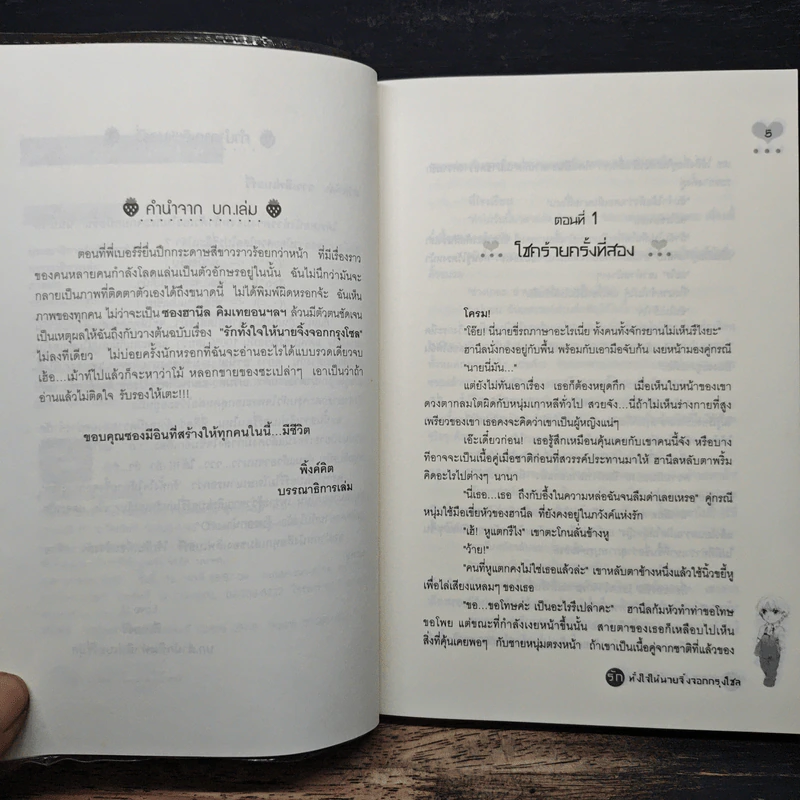 คำนำจาก บก.เล่ม
ตอนที่พี่เบอร์รี่ยื่นปึกกระดาษสีขาวราวร้อยกว่าหน้า ที่มีเรื่องราว
ของคนหลายคนกำลังโลดแล่นเป็นตัวอักษรอยู่ในนั้น ฉันไม่นึกว่ามันจะ
กลายเป็นภาพที่ติดตาตัวเองได้ถึงขนาดนี้ ไม่ได้พิมพ์ผิดหรอกจ้ะ ฉันเห็น
ภาพของทุกคน ไม่ว่าจะเป็น ซองฮานึล คิมเทยอนฯลฯ ล้วนมีตัวตนชัดเจน
เป็นเหตุผลให้ฉันถึงกับวางต้นฉบับเรื่อง "รักทั้งใจให้นายจิ้งจอกกรุงโซล"
ไม่ลงทีเดียว ไม่บ่อยครั้งนักหรอกที่ฉันจะอ่านอะไรได้แบบรวดเดียวจบ
เฮ้อ...เม้าท์ไปแล้วก็จะหาว่าโม้ หลอกขายของซะเปล่าๆ เอาเป็นว่าถ้า
อ่านแล้วไม่ติดใจ รับรองให้เตะ!!!
ขอบคุณซองมีอินที่สร้างให้ทุกคนในนี้...มีชีวิต
พิ้งค์คิต
บรรณาธิการเล่ม
5
ตอนที่ 1
โชคร้ายครั้งที่สอง
โครม!
"โอ๊ย! นี่นายขี่รถภาษาอะไรเนี่ย ทั้งคนทั้งจักรยานไม่เห็นรึไงยะ"
ฮานึลนั่งกองอยู่กับพื้น พร้อมกับเอามือจับก้น เงยหน้ามองคู่กรณี
"นายนี่มัน..."
แต่ยังไม่ทันเอาเรื่อง เธอก็ต้องหยุดกึก เมื่อเห็นใบหน้าของเขา
ดวงตากลมโตผิดกับหนุ่มเกาหลีทั่วไป สวยจัง...นี่ถ้าไม่เห็นร่างกายที่สูง
เพรียวของเขา เธอคงจะคิดว่าเป็นผู้หญิงแน่ๆ
เอ๊ะเดี๋ยวก่อน! เธอรู้สึกเหมือนคุ้นเคยกับเขาคนนี้จัง หรือบาง
ทีอาจจะเป็นเนื้อคู่เมื่อชาติก่อนที่สวรรค์ประทานมาให้ ฮานึลหลับตาพริ้ม
คิดอะไรไปต่างๆ นานา
"นี่เธอ...เธอ ถึงกับอึ้งในความหล่อฉันจนลืมด่าเลยเหรอ" คู่กรณี
หนุ่มใช้มือเขี่ยหัวของฮานึล ที่ยังคงอยู่ในภวังค์แห่งรัก
"เฮ้! หูแตกรึไง" เขาตะโกนลั่นข้างหู
"ว้าย!"
"คนที่หูแตกคงไม่ใช่เธอแล้วล่ะ" เขาหลับตาข้างหนึ่งแล้วใช้นิ้วขยี้หู
เพื่อไล่เสียงแหลมๆ ของเธอ
"ขอ...ขอโทษค่ะ เป็นอะไรรึเปล่าคะ" ฮานึลก้มหัวทำท่าขอโทษ
ขอโพย แต่ขณะที่กำลังเงยหน้าขึ้นนั้น สายตาของเธอก็เหลือบไปเห็น
สิ่งที่คุ้นเคยพอๆ กับชายหนุ่มตรงหน้า ถ้าเขาเป็นเนื้อคู่จากชาติที่แล้วของ
รัก ทั้งใจให้นายจิ้งจอกกรุงโซล